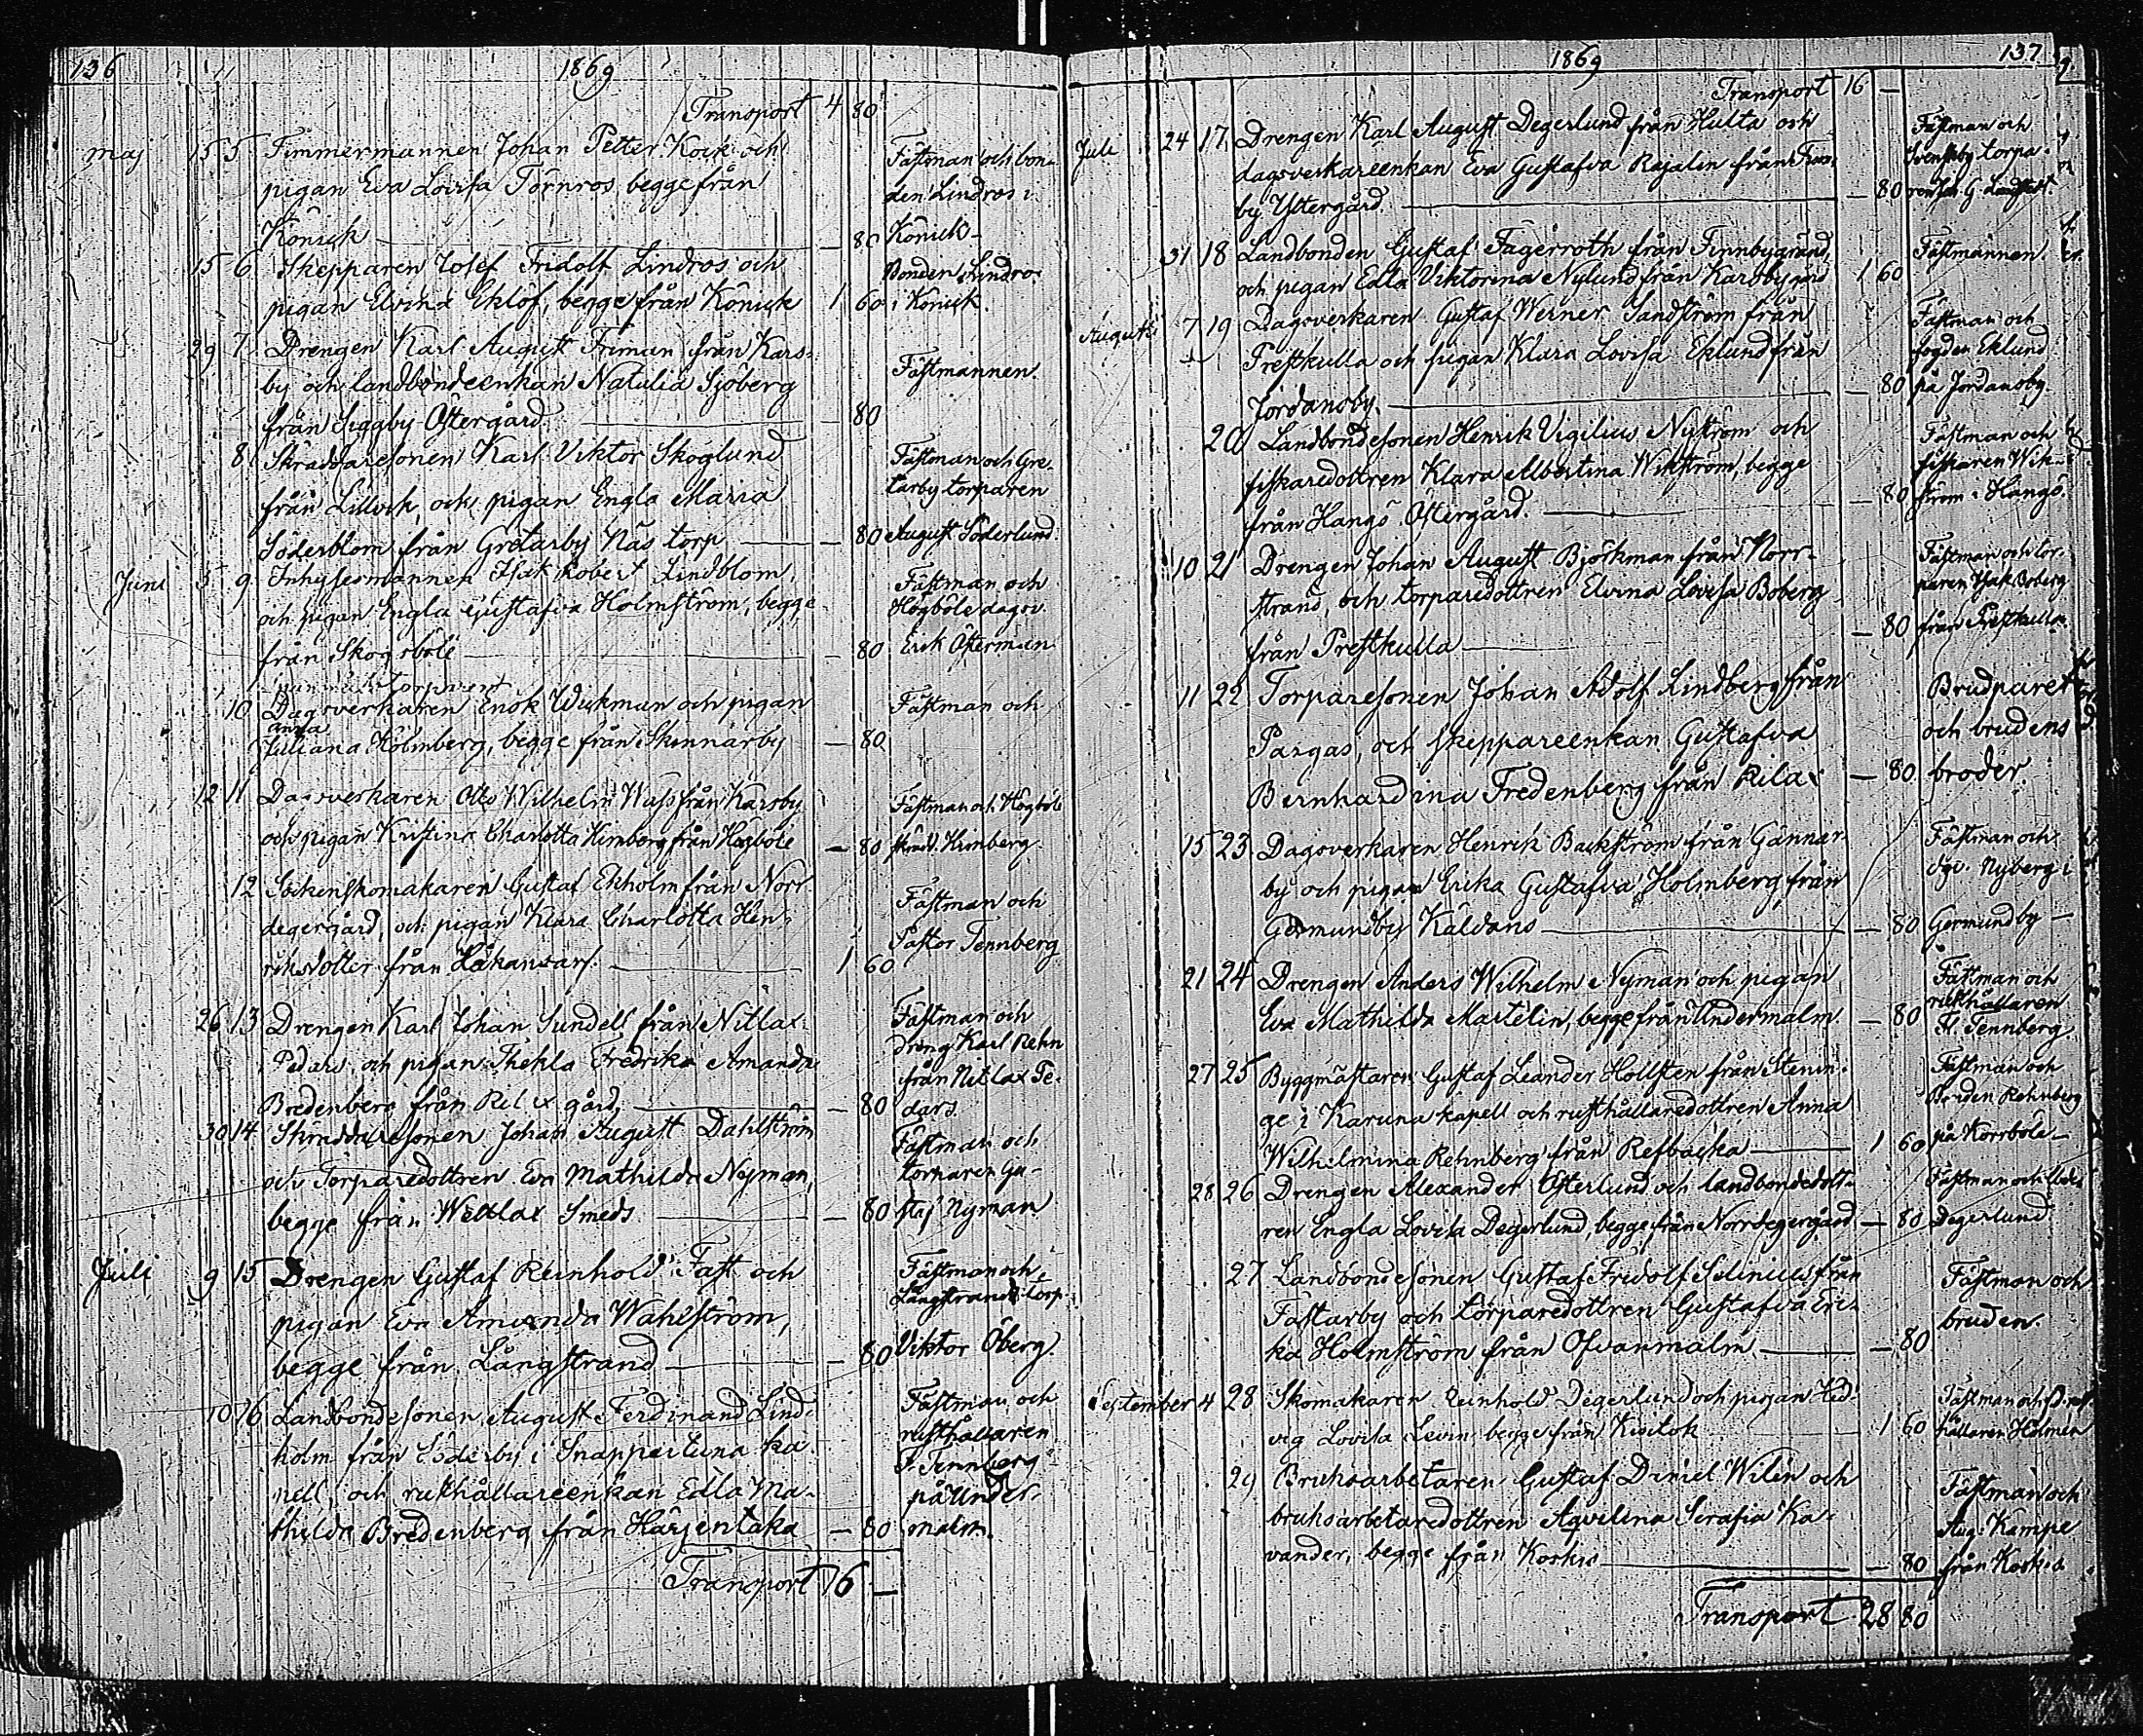 136
1869
Transport 4 80
maj 15 5 Timmermannen Johan Petter Kock och
pigan Eva Lovisa Törnros, begge från
Könick — 80
Fästman och bon-
den Lindros i
Könick
15 6 Skepparen Josef Fridolf Lindros och
pigan Elvina Eklöf, begge från Könick 1 60
Bonden Lindros
i Könick.
29 7 Drengen Karl August Friman från Kars-
by och landbondeenkan Natalia Sjöberg
från Siggby Östergård — 80
Fästmannen.
8 Skräddaresonen Karl Viktor Skoglund
från Lillvik, och pigan Engla Maria
Söderblom från Gretarby Näs torp — 80
Fästman och Gre-
tarby torparen
August Söderlund.
Juni 5 9 Inhysesmannen Isak Robert Lindblom,
och pigan Engla Gustafva Holmström, begge
från Skogsböle — 80
Fästman och
Högböle dagsv.
Erik Österman
10 Dagsverkaren Enok Wickman och pigan
Anna
Juliana Holmberg, begge från Skinnarby — 80
Fästman och
12 11 Dagsverkaren Otto Wilhelm Wass från Karsby
och pigan Kristina Charlotta Himberg från Högböle — 80
Fästman och Högböle
skrädd. Himberg
12 Sockenskomakaren Gustaf Ekholm från Norr
degergård, och pigan Klara Charlotta Hen-
riksdotter från Håkansarf. 1 60
Fästman och
Pastor Tennberg
26 13 Drengen Karl Johan Sundell från Nitlax
Pedars, och pigan Thekla Fredrika Amanda
Bredenberg från Rilax gård, — 80
Fästman och
dreng Karl Rehn
från Nitlax Pe-
dars.
30 14 Skräddaresonen Johan August Dahlström
och Torparedottren Eva Mathilda Nyman,
begge från Westlax Smeds. — 80
Fästman och
torparen Gu-
staf Nyman
Juli 9 15 Drengen Gustaf Reinhold Fast och
pigan Eva Amanda Wahlström,
begge från Långstrand — 80
Fästman och
Långstrand torp.
Viktor Öberg
10 16 Landbondesonen August Ferdinand Lind-
holm från Söderby i Snappertuna ka-
pell, och rusthållareenkan Edla Ma-
thilda Bredenberg från Harjentaka — 80
Fästman och
rusthållaren
F. Tennberg
på Under-
malm.
Transport 16 —
1869
137
Transport 16 —
Juli 24 17 Drengen Karl August Degerlund från Hulta och
dagsverkareenkan Eva Gustafva Rajalin från Fram-
by Ystergård. — 80
Fästman och
Svenskby torpa-
ren Joh. G. Landstedt
31 18 Landbonden Gustaf Fagerroth från Finnbygränd,
och pigan Edla Viktorina Nylund från Karsby gård 1 60
Fästmannen.
Augusti 7 19 Dagsverkaren Gustaf Werner Sandström från
Prestkulla och pigan Klara Lovisa Eklund från
Jordansby. — 80
Fästman och
fogden Eklund
på Jordansby.
20 Landbondesonen Henrik Vigilius Nyström och
fiskaredottren Klara Albertina Wikström, begge
från Hangö Östergård. — 80
Fästman och
fiskaren Wik-
ström i Hangö.
10 21 Drengen Johan August Björkman från Norr-
strand, och torparedottren Elvina Lovisa Boberg
från Prestkulla — 80
Fästman och tor-
paren Isak Boberg
från Prestkulla
11 22 Torparesonen Johan Adolf Lindberg från
Pargas, och skeppareenkan Gustafva
Bernhardina Fredenberg från Rilax — 80
Brudparet
och brudens
broder.
15 23 Dagsverkaren Henrik Backström från Gännar-
by och pigan Erika Gustafva Holmberg från
Germundby Kaldans — 80
Fästman och
dgv. Nyberg i
Germundby —
21 24 Drengen Anders Wilhelm Nyman och pigan
Eva Mathilda Martelin, begge från Undermalm — 80
Fästman och
rusthållaren
F. Tennberg
27 25 Byggmästaren Gustaf Leander Hollsten från Stenin-
ge i Karuna kapell och rusthållaredottren Anna
Wilhelmina Rehnberg från Refbacka 1 60
Fästman och
Bonden Rehnberg
på Korrböle —
28 26 Drengen Alexander Österlund och landbondedott-
ren Engla Lovisa Degerlund, begge från Norrdegergård — 80
Fästman och
Degerlund
27 Landbondesonen Gustaf Fridolf Selinius från
Fastarby och torparedottren Gustafva Eri-
ka Holmström från Ofvanmalm — 80
Fästman och
bruden.
September 4 28 Skomakaren Reinhold Degerlund och pigan Hed-
vig Lovisa Levin begge från Kivitok 1 60
Fästman och
hållaren Holmén
29 Bruksarbetaren Gustaf Daniel Wilén och
bruksarbetaredottren Aqvilina Serafia Ka-
vander, begge från Koskis — 80
Fästman och
Aug. Kampe
från Koskis
Transport 28 80